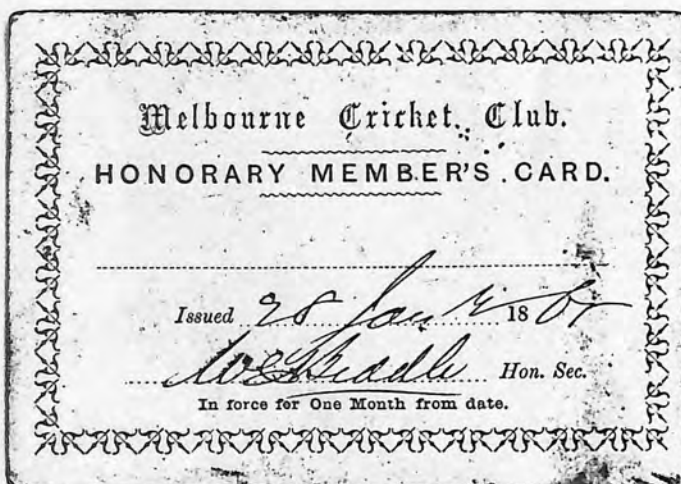 Melbourne Cricket Club.
HONORARY MEMBER'S CARD.
Issued 28 Jany 18
Hon. Sec.
In force for One Month from date.